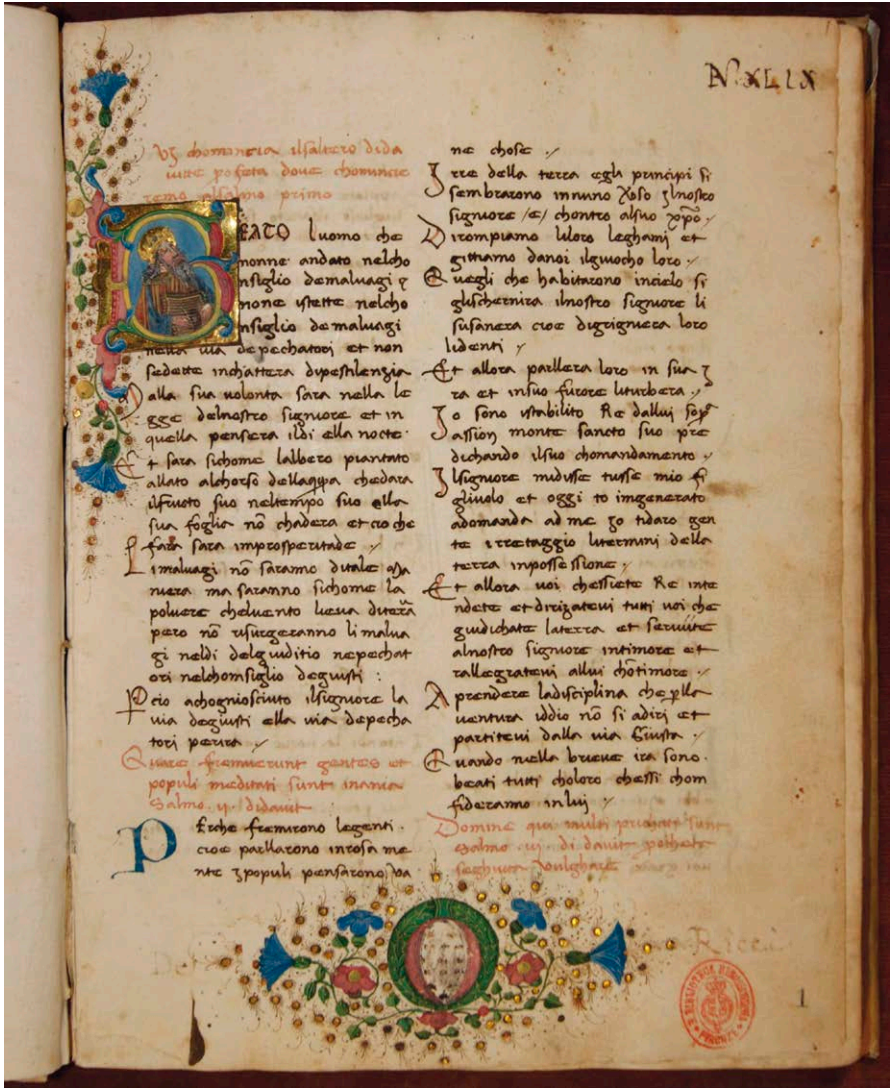 N. XLIX
chomincia ilsaltero dida
dove chomincie
remo alsalmo primo
BEATO luomo che
nonne andato nelcho
nsiglio demalvagi e
none istette nelcho
nsiglio de malvagi
nella via depechatori et non
sedette inchattera dipestilenzia
alla sua volonta sara nella le
gge delnostro signiore et in
quella pensera ildi ella nocte.
Et sara sichome lalbero piantato
allato alchorso chedara
ilfructo suo neltempo suo ella
sua foglia nō chadera et cio che
fara sara improsperitade
Limalvagi nō saranno ditale ma
niera ma saranno sichome la
polvere chelvento lieva diterra
pero nō risurgeranno li malva
gi neldi delguiditio nepechat
ori nelchomsiglio degiusti :
Pcio achogniosciuto ilsigniore la
via degiusti ella via depecha
tori perira
Quare fremuerunt gentes et
populi meditati sunt inania
Salmo . ij . didavit
PErche fremirono legenti .
cioe parllarono intosa me
nte populi pensarono va
ne chose
Irre della terra egli principi si
sembrarono innuno nostro
signiore /e/ chontro alsuo xp̄o
Dirompiamo liloro leghami et
gittiamo danoi ilgiuocho loro
Quegli che habitarono incielo si
glischernira ilnostro signiore li
susanera cioe digrigniera loro
lidenti
Et allora parllera loro in sua
ra et insuo furore liturbera
Io sono istabilito Re dallui
assion monte sancto suo pre
dichando ilsuo chomandamento
Ilsigniore midisse tusse mio fi
gliuolo et oggi to imgenerato
adomanda ad me io tidaro gen
te irretaggio litermini della
terra inpossessione
Et allora voi chessiete Re inte
ndete et dirizatevi tutti voi che
giudichate laterra et servite
alnostro signiore intimore et
rallegratevi allui chōtimore
Aprendere ladisciplina che plla
ventura iddio nō si adiri et
partitevi dalla via Giusta
Quando nella brieve ira sono
beati tutti choloro chessi chom
fideranno inlui
Domine qui multi sunt
salmo . iij . di davit
1